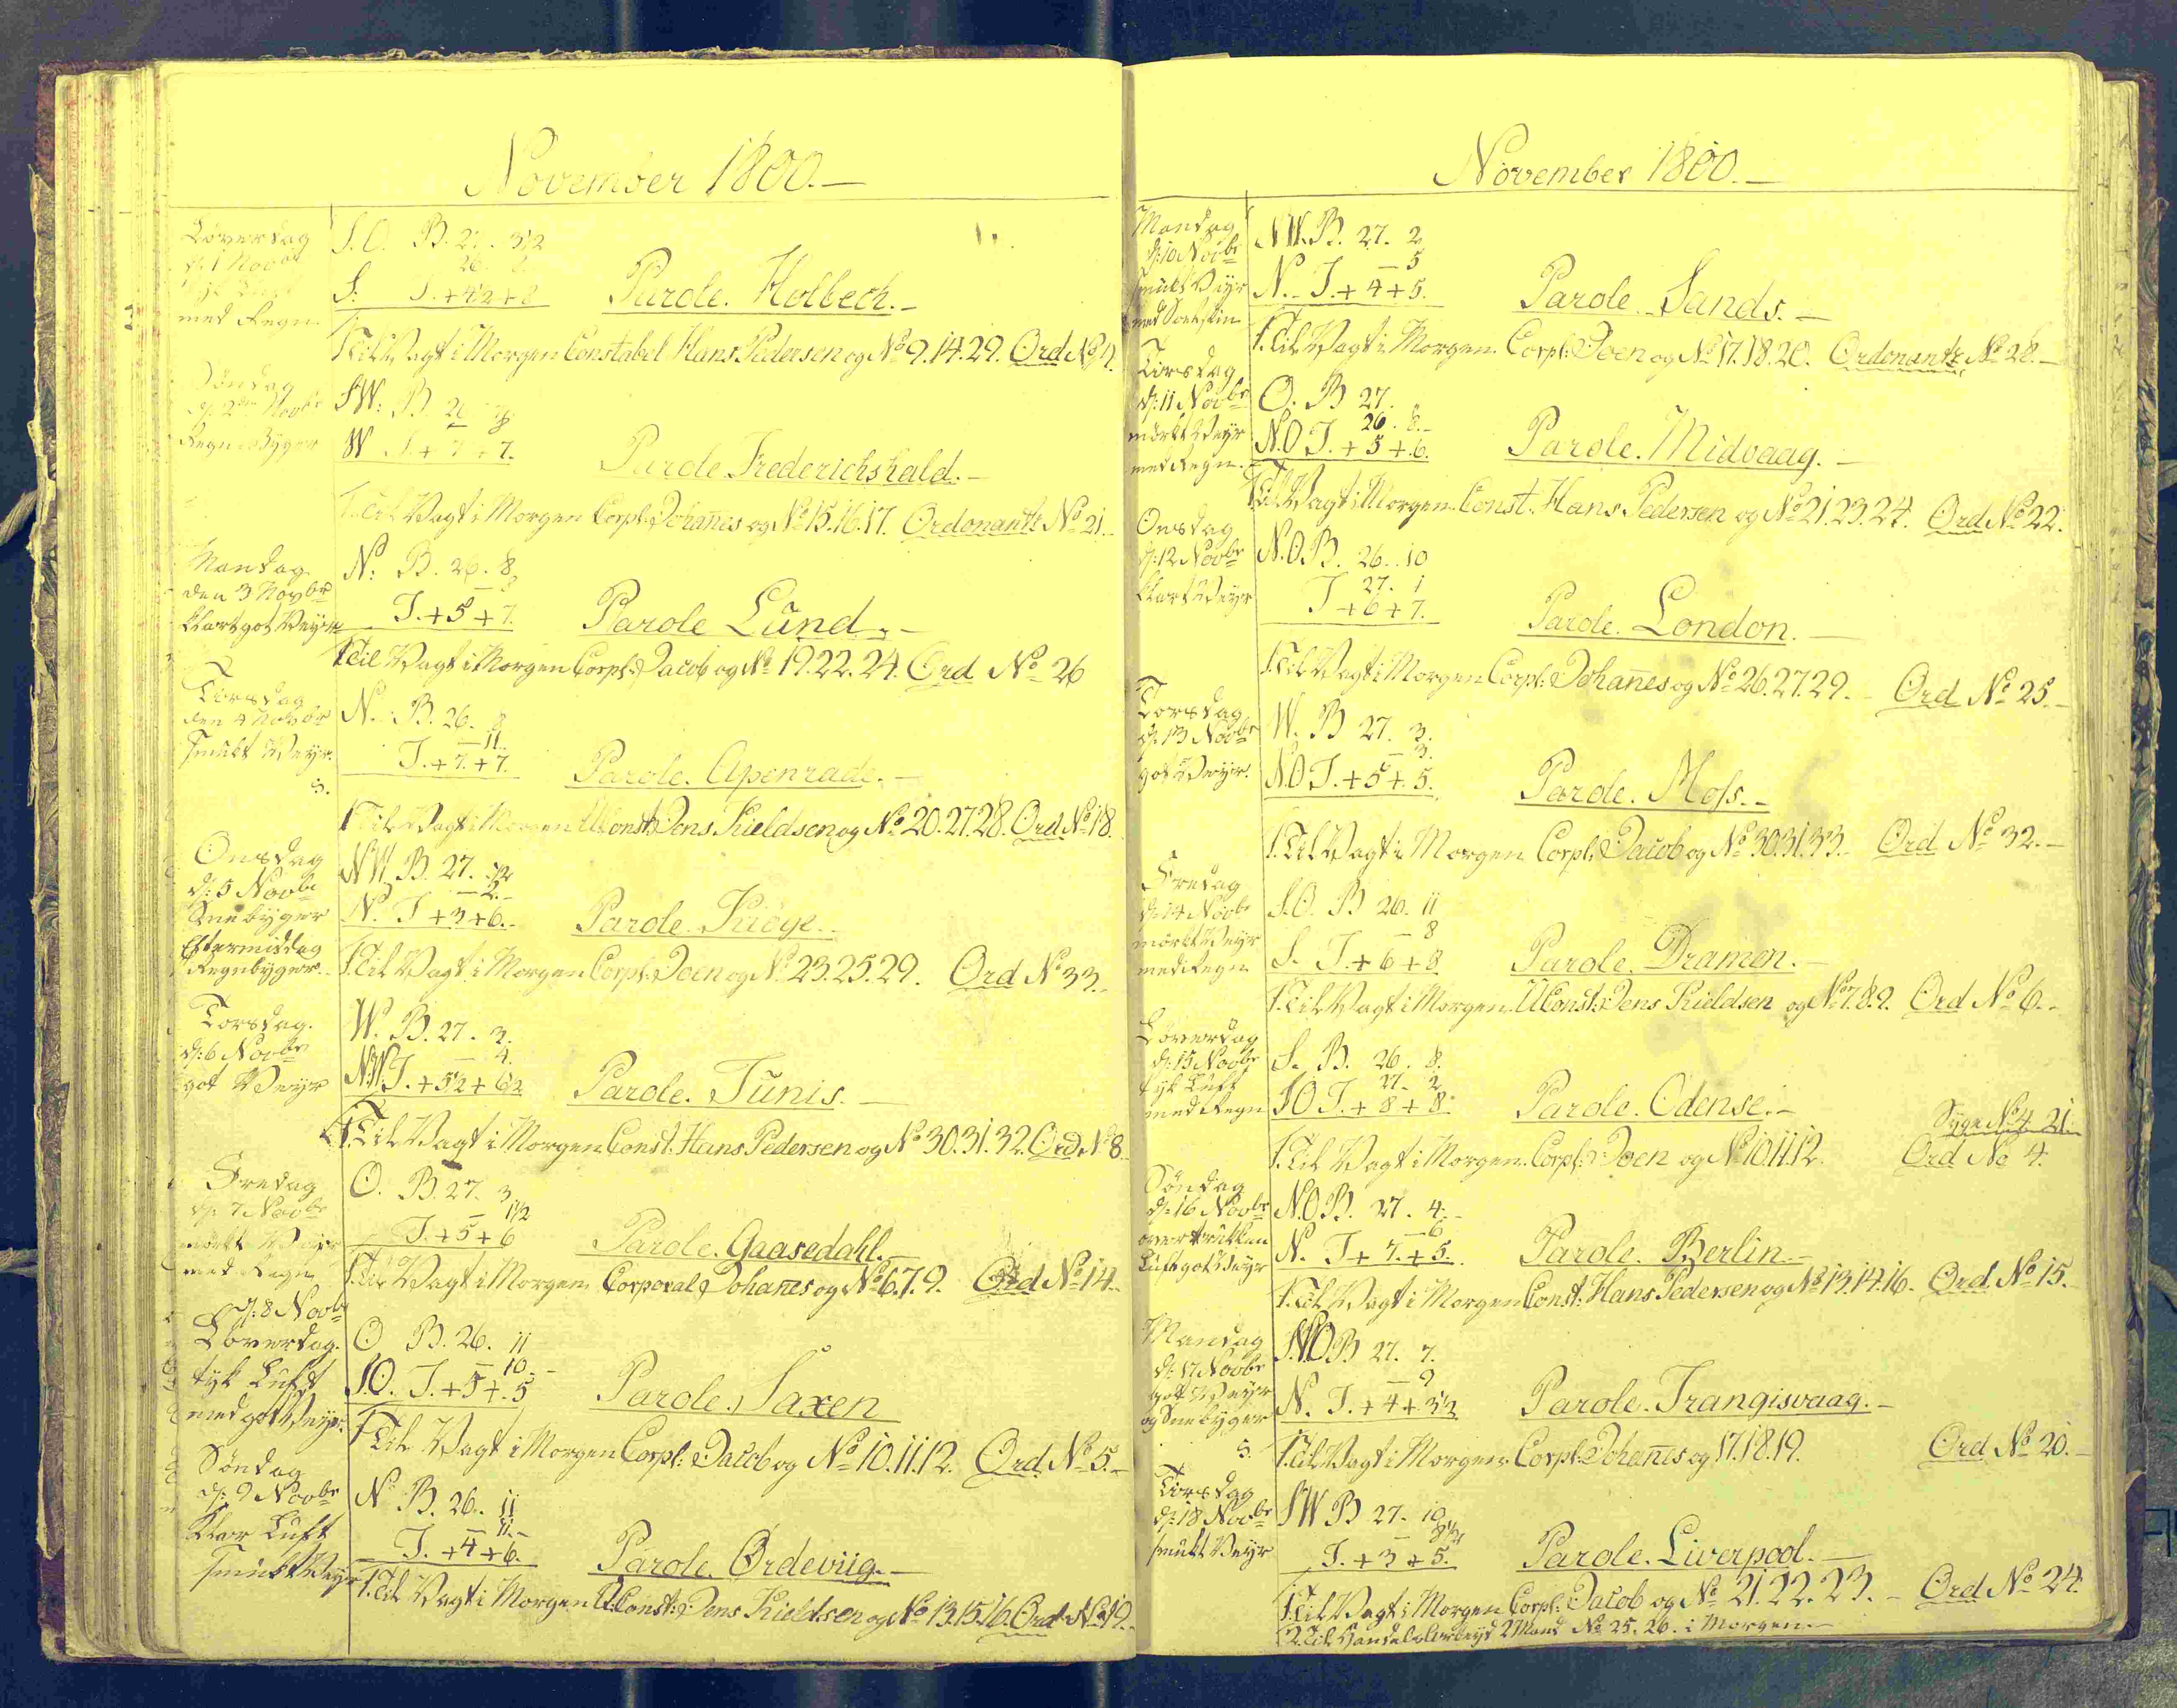 November 1800.
Löverdag
d: 1 Novbr
med Regn.
S.O. B. 27. 3 1/2
26.
S: T. + 4 1/2 + 8
Parole. Holbech.
1. Til Vagt i Morgen Constabel Hans Pedersen og No 9. 14. 29. Ord No
Söndag
d: 2den Novbr
Regn Byger
SW: B. 26
W T. + 7 + 7.
Parole Frederichshald.
1. Til Vagt i Morgen Corpl: Johanes og No 15. 16. 17. Ordonantz No 21.
Mandag
den 3 Novbr
klart got Veyr
N: B. 26. 8
T. + 5 + 7.
Parole Lund.
1 Til Vagt i Morgen Corpl: Jacob og No 19. 22. 24. Ord No 26
Tirsdag
den 4 Novbr
smukt Veyr.
5.
N. B. 26. 9
— 11.
T. + 7. + 7.
Parole. Apenrade.
1 Til Vagt i Morgen UConst: Jens Kieldsen og No 20. 27. 28. Ord No 18.
Onsdag
d: 5 Novbr
Sneebyger
Eftermiddag
Regnbyger.
NW. B. 27. 1/2
— 2.
N. T + 3 + 6.
Parole. Kiöge.
1. Til Vagt i Morgen Corpl: Joen og No 23. 25. 29. Ord No 33.
Torsdag.
d: 6 Novbr
got Veyr
W. B. 27. 3.
— 4.
N.W. T. + 5 1/2 + 6 1/2
Parole. Tunis.
1. Til Vagt i Morgen Const. Hans Pedersen og No 30. 31. 32. Ord. No 8
Fredag
d: 7 Novbr
mörkt Veyr
med Regn
O. B. 27. 3
— 1 1/2
T. + 5 + 6
Parole. Gaasedahl.
1. Til Vagt i Morgen Corporal Johanes og No 6. 7. 9. Ord No 14.
d: 8 Novbr
Löverdag.
tyk Luft
med got Veyr.
O B. 26. 11
— 10.
S.O. T. + 5 + 5
Parole. Saxen
1 Til Vagt i Morgen Corpl: Jacob og No 10. 11. 12. Ord No 5.
Söndag
d: 9 Novbr
klar Luft
smukt Veyr
N B. 26. 11
— 11.
T. + 4 + 6.
Parole. Ördeviig.
1. Til Vagt i Morgen UConst: Jens Kieldsen og No 13. 15. 16. Ord No 19.
November 1800.
Mandag
d: 10 Novbr
smukt Veyr
med Soelskin
NW. B. 27. 2
— 5
N. T. + 4 + 5.
Parole. Sands.
1. Til Vagt i Morgen. Corpl: Joen og No 17. 18. 20. Ordonantz No 28.
Tirsdag
d: 11 Novbr
mörkt Veyr
med Regn.
O. B 27.
26. 8.
N.O T. + 5 + 6.
Parole. Midvaag.
1 Til Vagt i Morgen. Const. Hans Pedersen og No 21. 23. 24. Ord No 22.
Onsdag
d: 12 Novbr
klart Veyr
N.O. B. 26. 10
27. 1
T + 6 + 7.
Parole. London.
1. Til Vagt i Morgen Corpl: Johanes og No 26. 27. 29. Ord No 25.
Torsdag
d: 13 Novbr
got Veyr.
W. B 27. 3.
— 3.
N.O T. + 5 + 5.
Parole. Moss.
1. Til Vagt i Morgen Corpl: Jacob og No 30. 31. 33. Ord No 32.
Fredag
d: 14 Novbr
mörkt Veyr
med Regn
S.O. B 26. 11
— 8
S. T. + 6 + 8
Parole. Dramen.
1. Til Vagt i Morgen. UConst: Jens Kieldsen og No 7. 8. 9. Ord No 6.
Löverdag
d: 15 Novbr
tyk Luft
med Regn
S. B. 26. 8.
27. 2
SO T. + 8 + 8.
Parole. Odense.
Syge No 4. 21.
1. Til Vagt i Morgen. Corpl: Joen og No 10. 11. 12. Ord No 4.
Söndag
d: 16 Novbr
overtrukken
Luft got Veyr
N.O B. 27. 4.
— 6
N. T + 7. + 5.
Parole. Berlin.
1. Til Vagt i Morgen Const: Hans Pedersen og No 13. 14. 16. Ord. No 15.
Mandag
d: 17 Novbr
got Veyr
og Sneebyger
5.
N.O B 27. 7.
— 9
N. T. + 4 + 3 1/2
Parole. Trangisvaag.
1. Til Vagt i Morgen Corpl: Johanes og 17. 18. 19. Ord No 20.
Tirsdag
d: 18 Novbr
smukt Veyr
SW B 27. 10
— 8 1/2
T. + 3 + 5.
Parole. Liverpool.
1. Til Vagt i Morgen Corpl: Jacob og No 21. 22. 23. Ord No 24.
2. Til Handels Arbeyd 2 Mand No 25. 26. i Morgen.